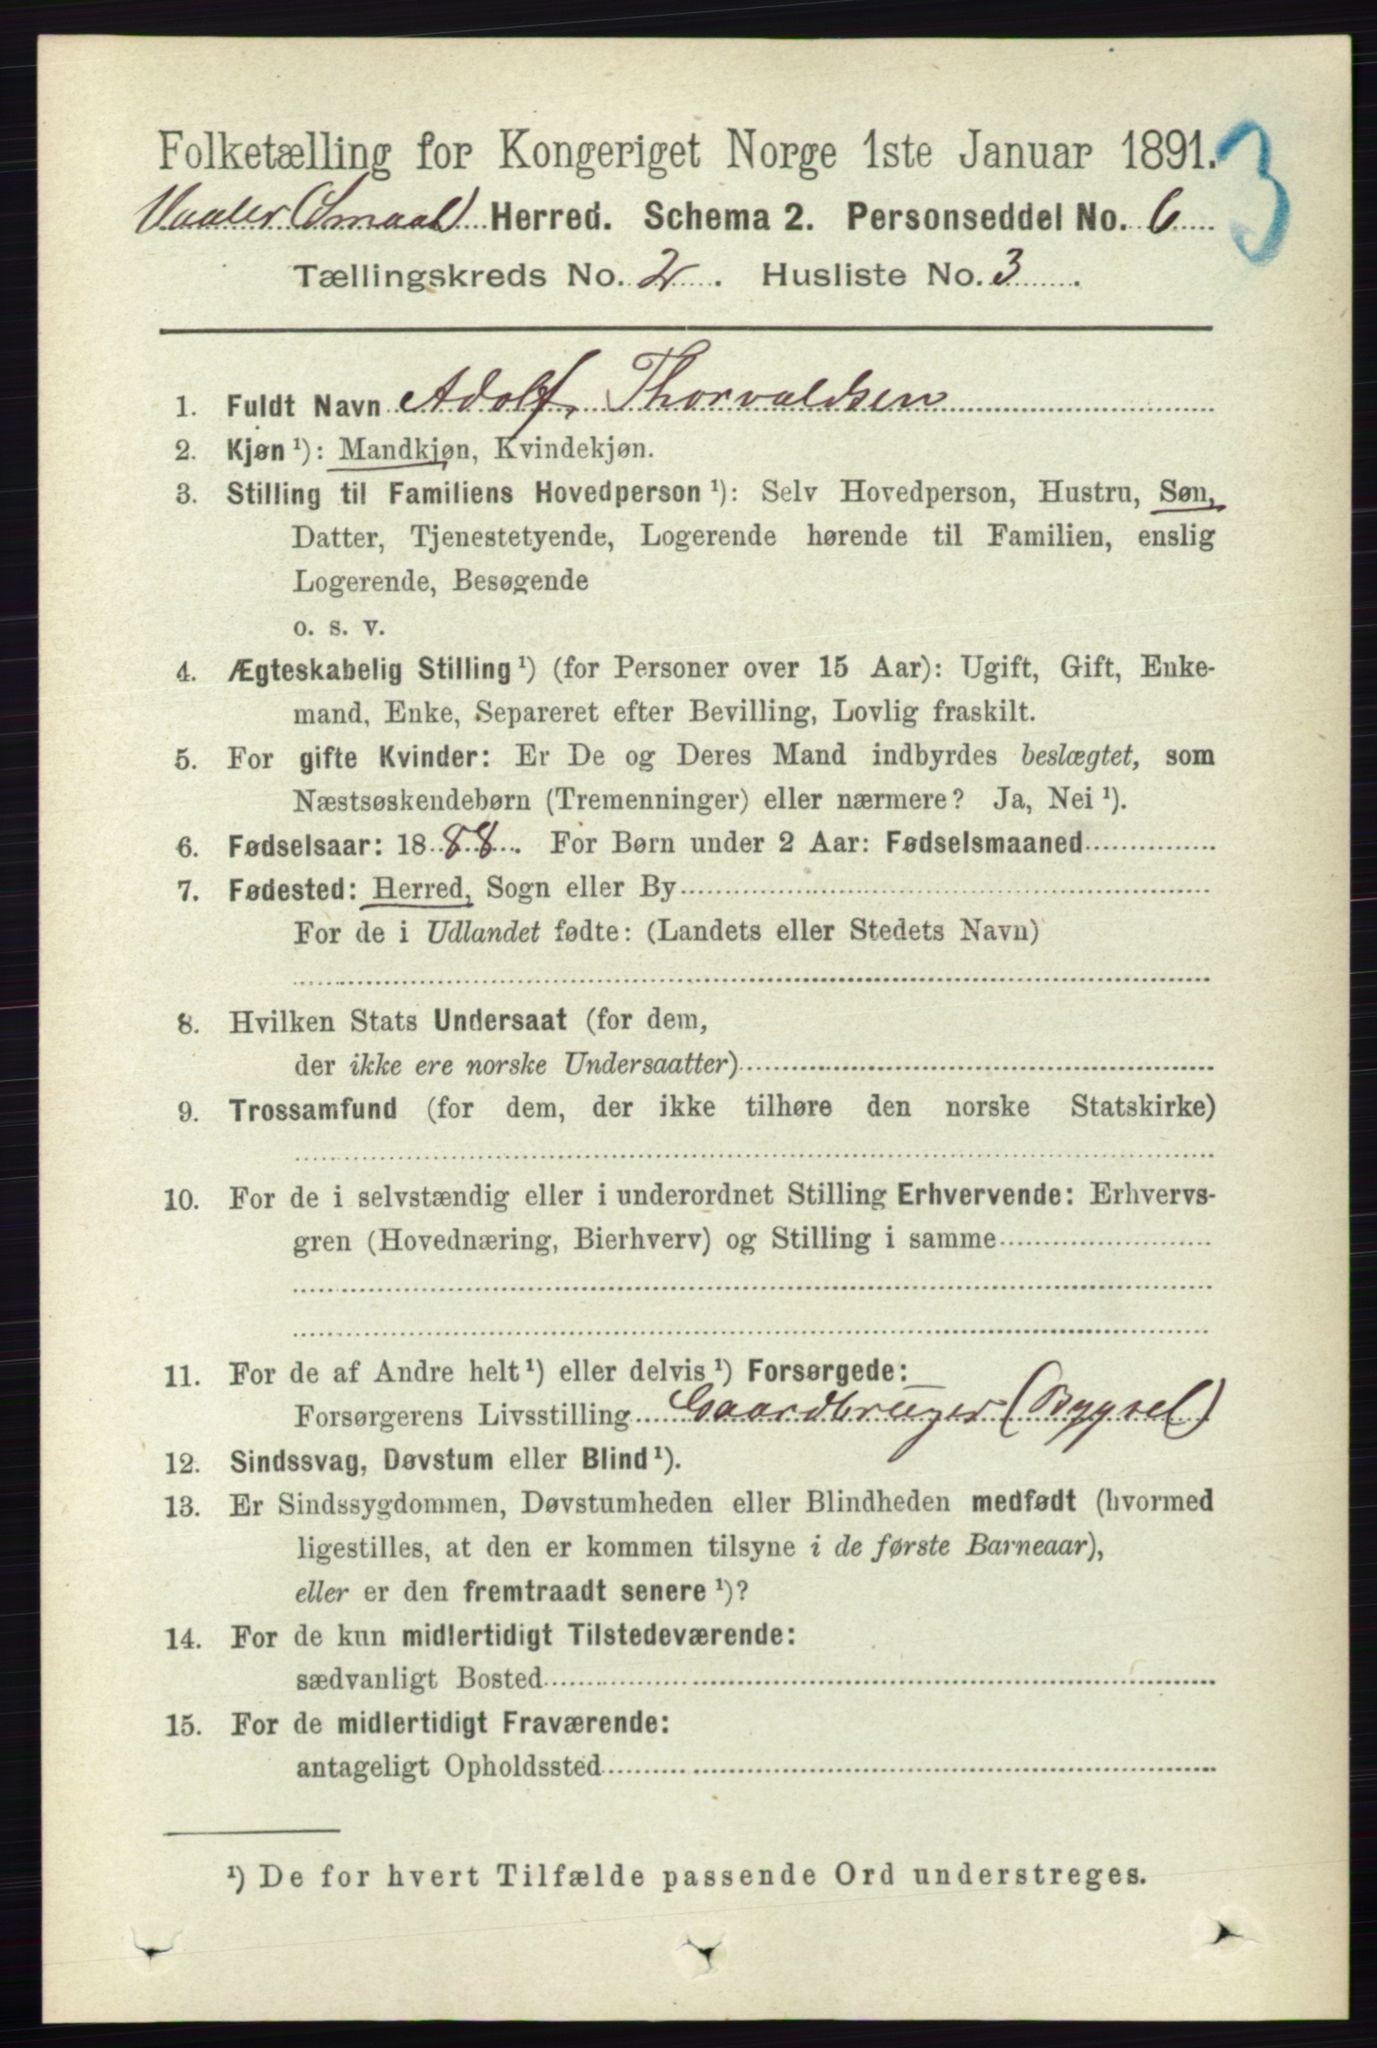 Folketælling for Kongeriget Norge 1ste Januar 1891.
3
Vaaler (Smaal) Herred. Schema 2. Personseddel No. 6
Tællingskreds No. 2. Husliste No. 3.
1. Fuldt Navn Adolf Thorvaldsen
2. Kjøn ¹): Mandkjøn, Kvindekjøn.
3. Stilling til Familiens Hovedperson ¹): Selv Hovedperson, Hustru, Søn,
Datter, Tjenestetyende, Logerende hørende til Familien, enslig
Logerende, Besøgende
o. s. v.
4. Ægteskabelig Stilling ¹) (for Personer over 15 Aar): Ugift, Gift, Enke-
mand, Enke, Separeret efter Bevilling, Lovlig fraskilt.
5. For gifte Kvinder: Er De og Deres Mand indbyrdes beslægtet, som
Næstsøskendebørn (Tremenninger) eller nærmere? Ja, Nei ¹).
6. Fødselsaar: 1888. For Børn under 2 Aar: Fødselsmaaned
7. Fødested: Herred, Sogn eller By
For de i Udlandet fødte: (Landets eller Stedets Navn)
8. Hvilken Stats Undersaat (for dem,
der ikke ere norske Undersaatter)
9. Trossamfund (for dem, der ikke tilhøre den norske Statskirke)
10. For de i selvstændig eller i underordnet Stilling Erhvervende: Erhvervs-
gren (Hovednæring, Bierhverv) og Stilling i samme
11. For de af Andre helt ¹) eller delvis ¹) Forsørgede:
Forsørgerens Livsstilling Gaardbruger (Bygsel)
12. Sindssvag, Døvstum eller Blind ¹).
13. Er Sindssygdommen, Døvstumheden eller Blindheden medfødt (hvormed
ligestilles, at den er kommen tilsyne i de første Barneaar),
eller er den fremtraadt senere ¹)?
14. For de kun midlertidigt Tilstedeværende:
sædvanligt Bosted
15. For de midlertidigt Fraværende:
antageligt Opholdssted
¹) De for hvert Tilfælde passende Ord understreges.